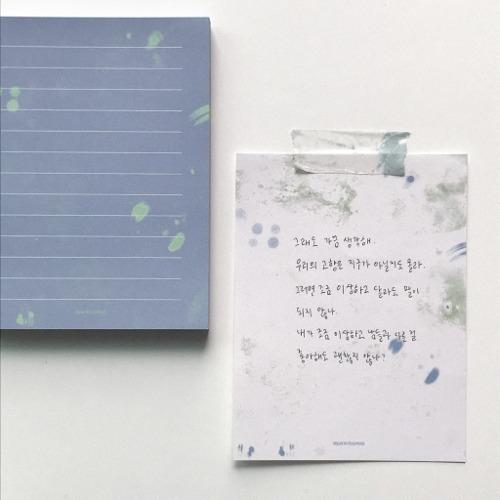 그래도 가끔 생각해.
우리의 고향은 지구가 아닐지도 몰라.
그러면 조금 이상하고 달라도 말이
되지 않나.
내가 조금 이상하고 남들과 다른 걸
좋아해도 괜찮지 않나?